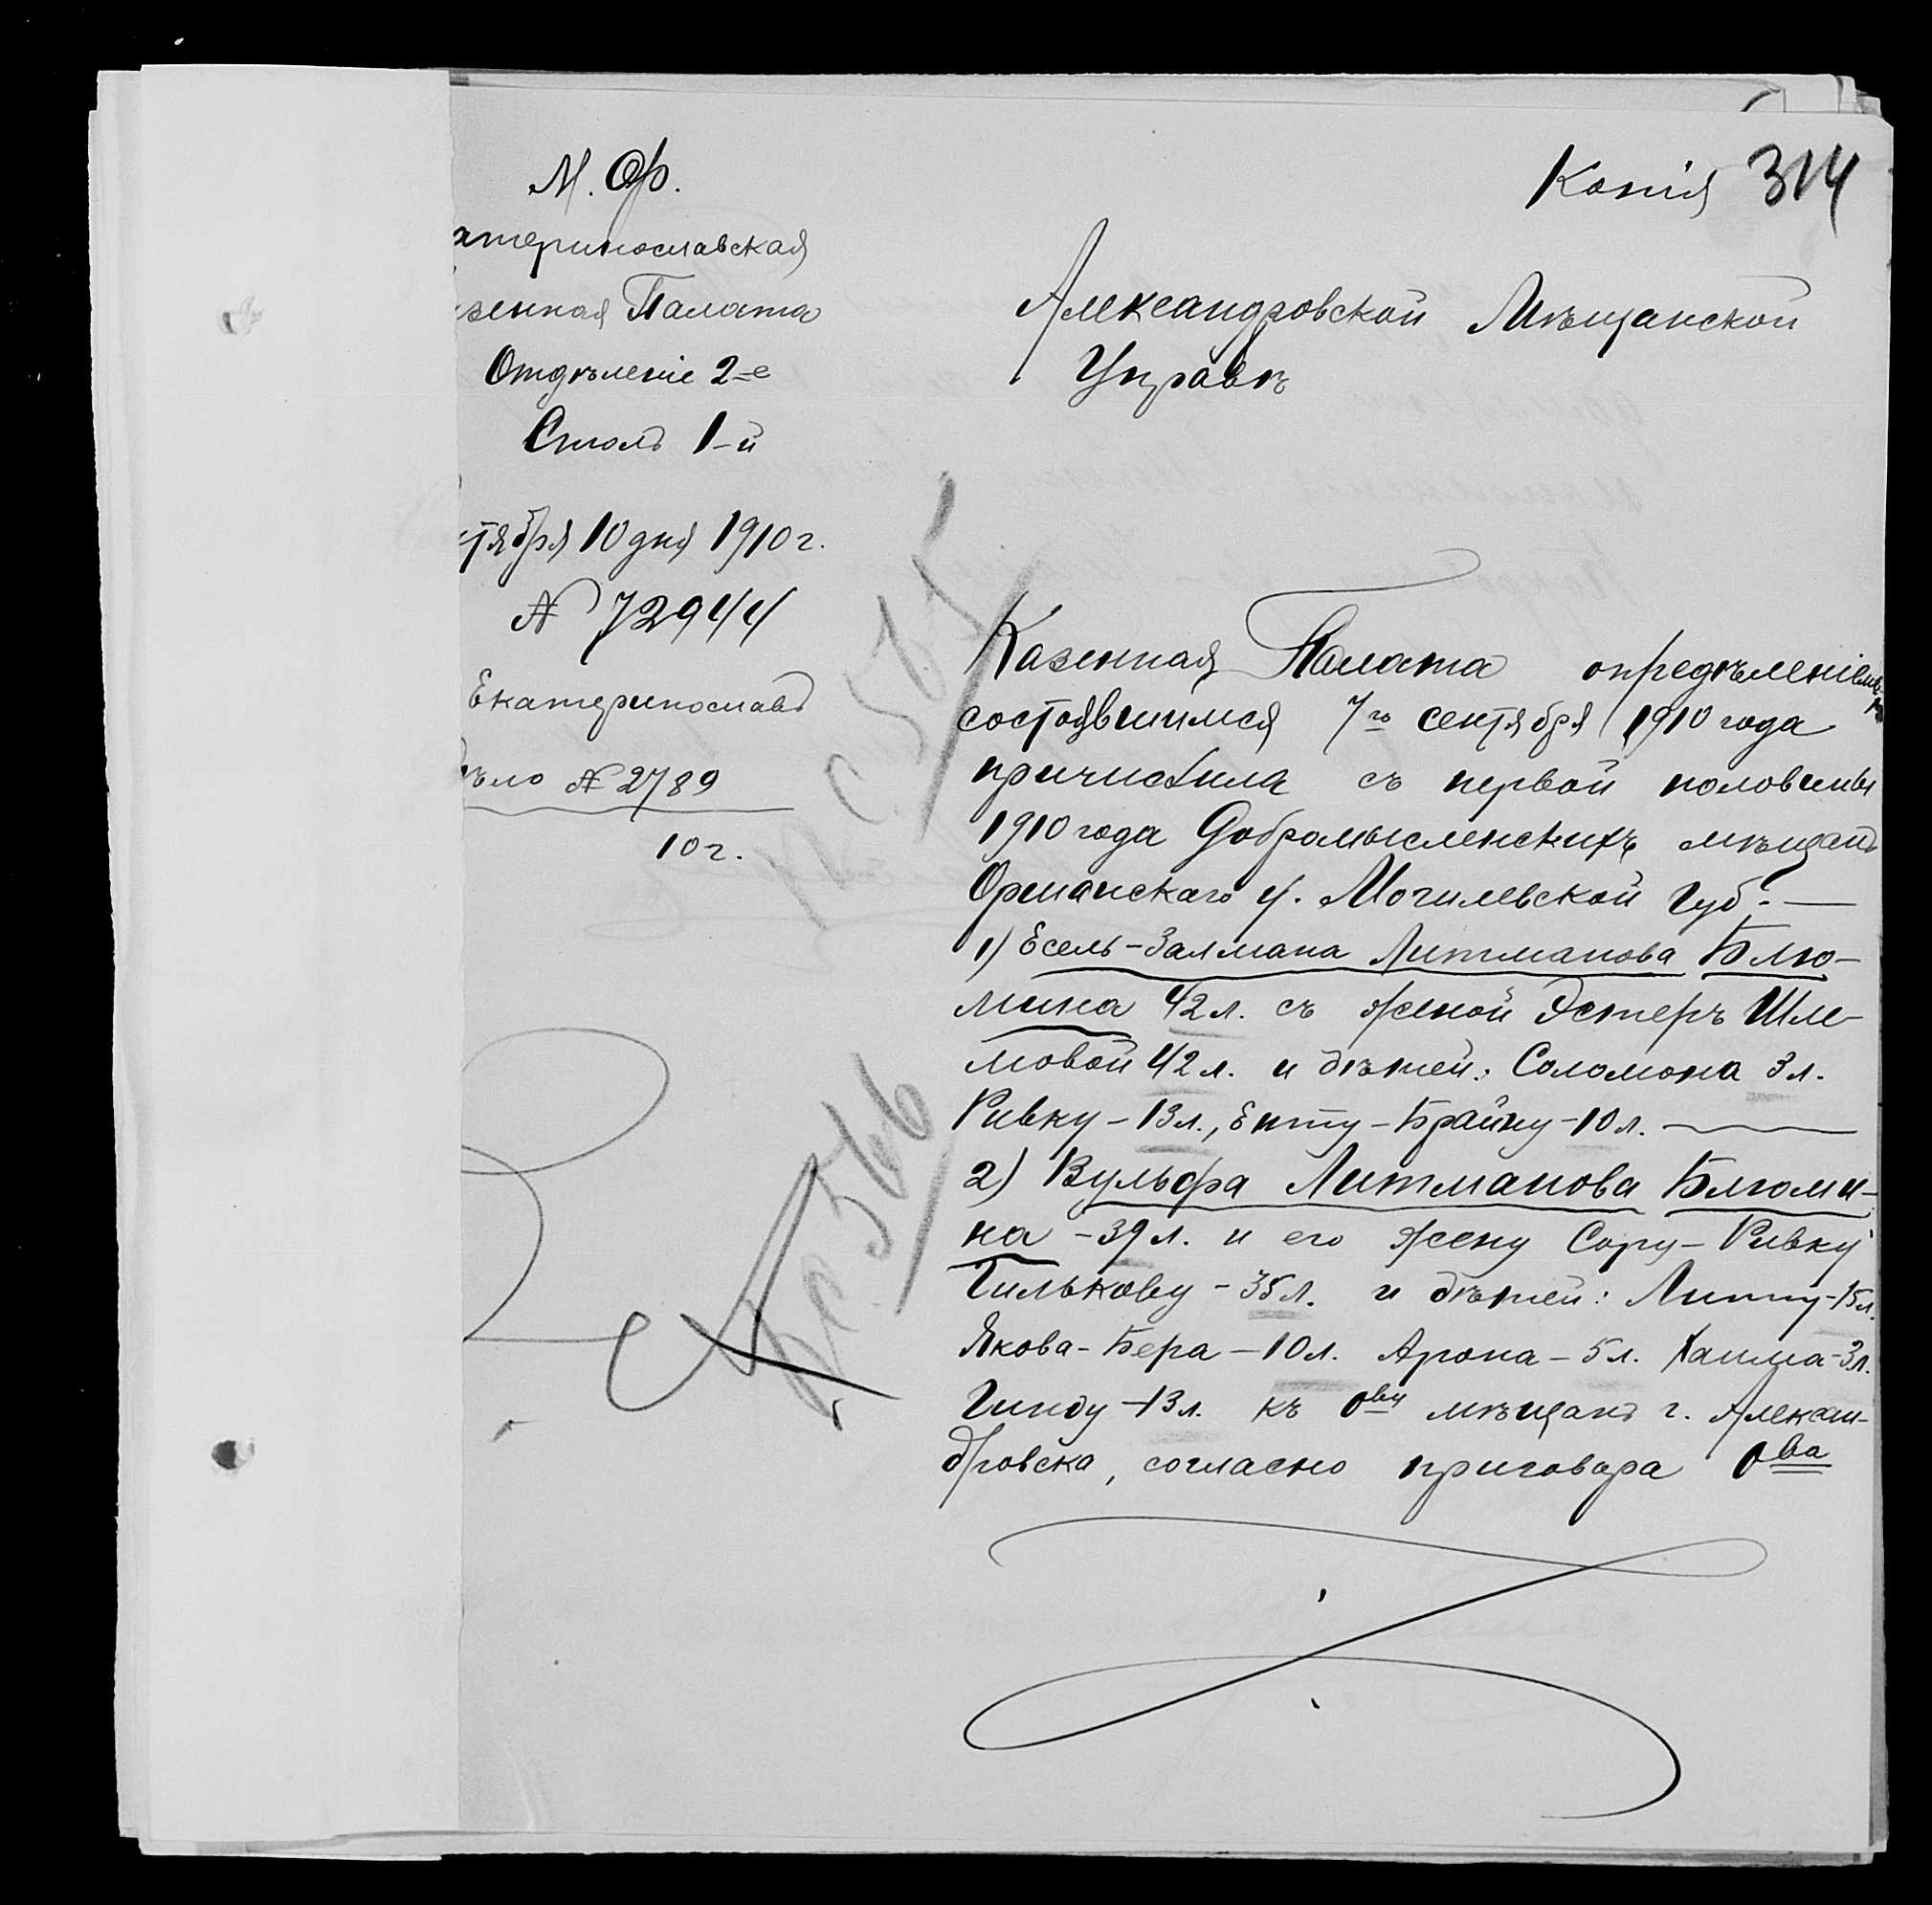 М. Ф.
атеринославская
зенная Палата
Отдѣленіе 2-е
Столъ 1-й
тября 10 дня 1910 г.
№ 72944
Екатеринославъ
ѣло № 2789
10 г.
Копія 314
Александровской Мѣщанской
Управѣ
Казенная Палата опредѣленіемъ
состоявшимся 7го сентября 1910 года
причислила съ первой половины
1910 года Добромысленскихъ мѣщанъ
Оршанскаго у. Могилевской губ. —
1) Есель-Залмана Литманова Блю-
мина 42 л. съ женой Эстеръ Шле-
мовой 42 л. и дѣтей: Соломона 3 л.
Ривку - 13 л., Енту-Брайну - 10 л. —
2) Вульфа Литманова Блюми-
на - 39 л. и его жену Сору-Ривку
Гилькову - 35 л. и дѣтей: Липу - 15 л.
Якова-Бера - 10 л. Арона - 5 л. Хаима - 3 л.
Гинду - 13 л. къ Ову мѣщанъ г. Алексан-
дровска, согласно приговора Ова
565
566